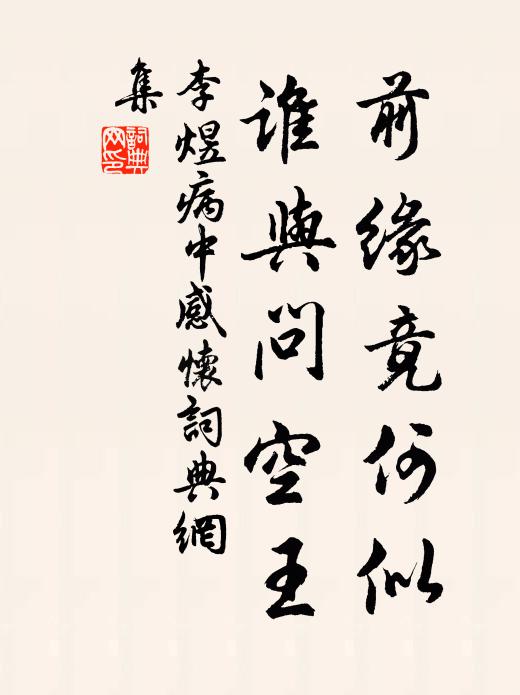 前缘竟何似
谁與問空王
李煜病中感懷詞典網
集
詞典
网印